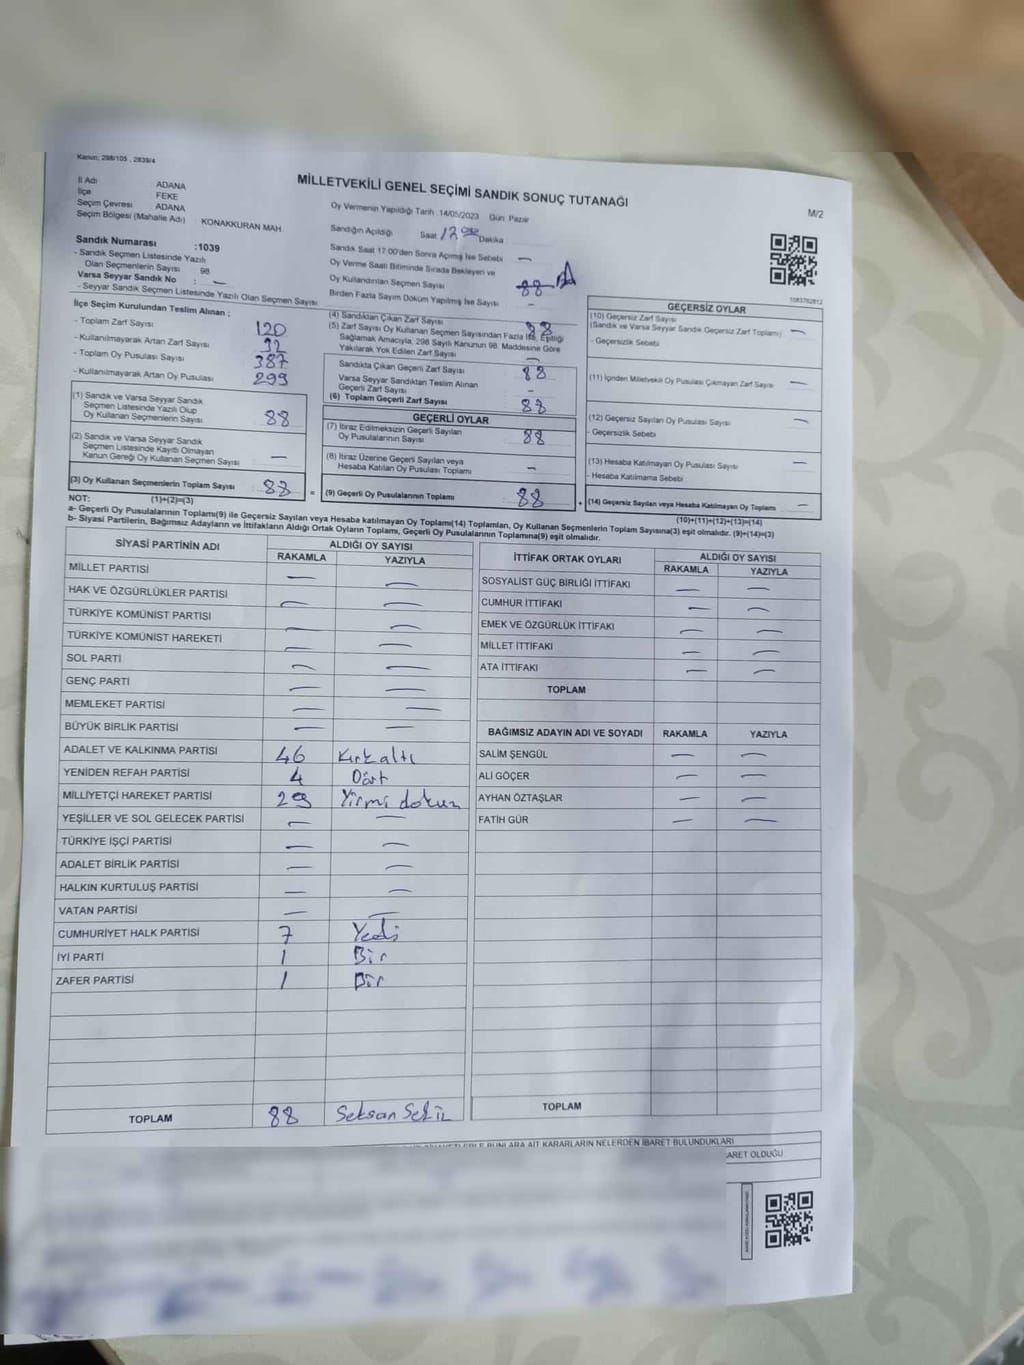 Kanun: 298/105 , 2839/4
MİLLETVEKİLİ GENEL SEÇİMİ SANDIK SONUÇ TUTANAĞI
M/2
İl Adı ADANA
İlçe FEKE
Seçim Çevresi ADANA
Seçim Bölgesi (Mahalle Adı) KONAKKURAN MAH.
Sandık Numarası :1039
- Sandık Seçmen Listesinde Yazılı
Olan Seçmenlerin Sayısı 98
Varsa Seyyar Sandık No : —
- Seyyar Sandık Seçmen Listesinde Yazılı Olan Seçmen Sayısı
Oy Vermenin Yapıldığı Tarih :14/05/2023 Gün: Pazar
Sandığın Açıldığı Saat Dakika :
Sandık Saat 17:00'den Sonra Açılmış İse Sebebi —
Oy Verme Saati Bitiminde Sırada Bekleyen ve
Oy Kullandırılan Seçmen Sayısı 88
Birden Fazla Sayım Döküm Yapılmış İse Sayısı -
1083762812
İlçe Seçim Kurulundan Teslim Alınan ;
- Toplam Zarf Sayısı 120
- Kullanılmayarak Artan Zarf Sayısı 32
- Toplam Oy Pusulası Sayısı 387
- Kullanılmayarak Artan Oy Pusulası 299
(1) Sandık ve Varsa Seyyar Sandık
Seçmen Listesinde Yazılı Olup
Oy Kullanan Seçmenlerin Sayısı 88
(2) Sandık ve Varsa Seyyar Sandık
Seçmen Listesinde Kayıtlı Olmayan
Kanun Gereği Oy Kullanan Seçmen Sayısı —
(3) Oy Kullanan Seçmenlerin Toplam Sayısı : 88
(1)+(2)=(3)
(4) Sandıktan Çıkan Zarf Sayısı 88
(5) Zarf Sayısı Oy Kullanan Seçmen Sayısından Fazla İse, Eşitliği
Sağlamak Amacıyla, 298 Sayılı Kanunun 98. Maddesine Göre
Yakılarak Yok Edilen Zarf Sayısı —
Sandıkta Çıkan Geçerli Zarf Sayısı 88
Varsa Seyyar Sandıktan Teslim Alınan
Geçerli Zarf Sayısı -
(6) Toplam Geçerli Zarf Sayısı 88
GEÇERLİ OYLAR
(7) İtiraz Edilmeksizin Geçerli Sayılan
Oy Pusulalarının Sayısı 88
(8) İtiraz Üzerine Geçerli Sayılan veya
Hesaba Katılan Oy Pusulası Toplamı —
= (9) Geçerli Oy Pusulalarının Toplamı 88 +
GEÇERSİZ OYLAR
(10) Geçersiz Zarf Sayısı
(Sandık ve Varsa Seyyar Sandık Geçersiz Zarf Toplamı) —
- Geçersizlik Sebebi
(11) İçinden Milletvekili Oy Pusulası Çıkmayan Zarf Sayısı —
(12) Geçersiz Sayılan Oy Pusulası Sayısı —
- Geçersizlik Sebebi
(13) Hesaba Katılmayan Oy Pusulası Sayısı —
- Hesaba Katılmama Sebebi
(14) Geçersiz Sayılan veya Hesaba Katılmayan Oy Toplamı —
(10)+(11)+(12)+(13)=(14)
NOT:
a- Geçerli Oy Pusulalarının Toplamı(9) ile Geçersiz Sayılan veya Hesaba katılmayan Oy Toplamı(14) Toplamları, Oy Kullanan Seçmenlerin Toplam Sayısına(3) eşit olmalıdır. (9)+(14)=(3)
b- Siyasi Partilerin, Bağımsız Adayların ve İttifakların Aldığı Ortak Oyların Toplamı, Geçerli Oy Pusulalarının Toplamına(9) eşit olmalıdır.
SİYASİ PARTİNİN ADI ALDIĞI OY SAYISI
RAKAMLA YAZIYLA
MİLLET PARTİSİ — —
HAK VE ÖZGÜRLÜKLER PARTİSİ — —
TÜRKİYE KOMÜNİST PARTİSİ — —
TÜRKİYE KOMÜNİST HAREKETİ — —
SOL PARTİ — —
GENÇ PARTİ — —
MEMLEKET PARTİSİ — —
BÜYÜK BİRLİK PARTİSİ — —
ADALET VE KALKINMA PARTİSİ 46 Kırkaltı
YENİDEN REFAH PARTİSİ 4 Dört
MİLLİYETÇİ HAREKET PARTİSİ 29 Yirmi dokuz
YEŞİLLER VE SOL GELECEK PARTİSİ — —
TÜRKİYE İŞÇİ PARTİSİ — —
ADALET BİRLİK PARTİSİ — —
HALKIN KURTULUŞ PARTİSİ — —
VATAN PARTİSİ — —
CUMHURİYET HALK PARTİSİ 7 Yedi
İYİ PARTİ 1 Bir
ZAFER PARTİSİ 1 Bir
TOPLAM 88 Seksan Sekiz
İTTİFAK ORTAK OYLARI ALDIĞI OY SAYISI
RAKAMLA YAZIYLA
SOSYALİST GÜÇ BİRLİĞİ İTTİFAKI — —
CUMHUR İTTİFAKI — —
EMEK VE ÖZGÜRLÜK İTTİFAKI — —
MİLLET İTTİFAKI — —
ATA İTTİFAKI — —
TOPLAM
BAĞIMSIZ ADAYIN ADI VE SOYADI RAKAMLA YAZIYLA
SALİM ŞENGÜL — —
ALİ GÖÇER — —
AYHAN ÖZTAŞLAR — —
FATİH GÜR — —
TOPLAM
BUNLARA AİT KARARLARIN NELERDEN İBARET BULUNDUKLARI
BARET OLDUĞU